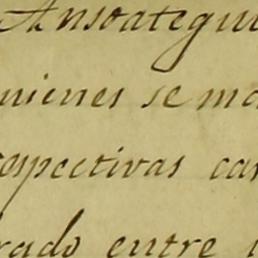 Ansoategui
nienes se ma
respectivas car
rado entre